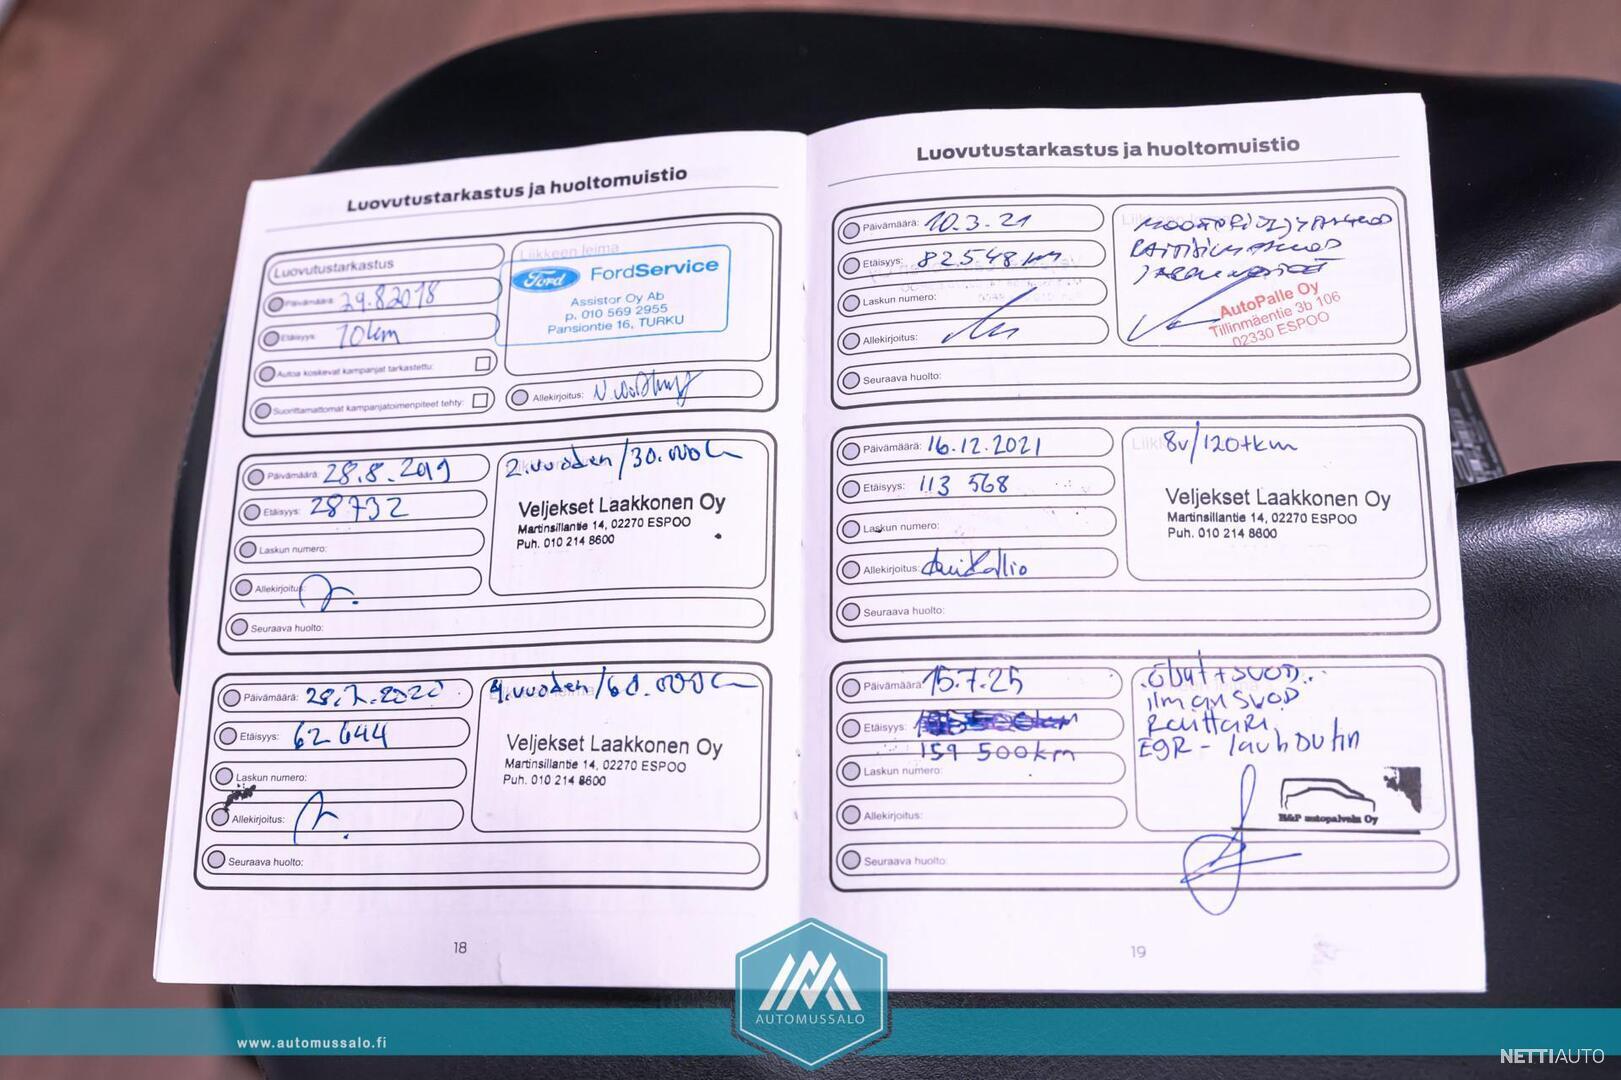 Luovutustarkastus ja huoltomuistio
Luovutustarkastus
Päivämäärä: 29.8.2018
Etäisyys: 10km
Autoa koskevat kampanjat tarkastettu:
Suorittamattomat kampanjatoimenpiteet tehty:
Liikkeen leima
Ford FordService
Assistor Oy Ab
p. 010 569 2955
Pansiontie 16, TURKU
Allekirjoitus:
Päivämäärä: 28.8.2019
Etäisyys: 28732
Laskun numero:
Allekirjoitus:
Seuraava huolto:
2.vuoden/30.000
Veljekset Laakkonen Oy
Martinsillantie 14, 02270 ESPOO
Puh. 010 214 8600
Päivämäärä: 28.7.2020
Etäisyys: 62644
Laskun numero:
Allekirjoitus:
Seuraava huolto:
4.vuoden/60.000
Veljekset Laakkonen Oy
Martinsillantie 14, 02270 ESPOO
Puh. 010 214 8600
18
Luovutustarkastus ja huoltomuistio
Päivämäärä: 10.3.21
Etäisyys: 82548 km
Laskun numero:
Allekirjoitus:
Seuraava huolto:
AutoPalle Oy
Tillinmäentie 3b 106
02330 ESPOO
Päivämäärä: 16.12.2021
Etäisyys: 113 568
Laskun numero:
Allekirjoitus:
Seuraava huolto:
8v/120tkm
Veljekset Laakkonen Oy
Martinsillantie 14, 02270 ESPOO
Puh. 010 214 8600
Päivämäärä: 15.7.25
Etäisyys:
159 500km
Laskun numero:
Allekirjoitus:
Seuraava huolto:
Öljyt+SUOD.
ilmanSUOD
Raittari
EGR-
H&P autopalvelu Oy
19
AUTOMUSSALO
www.automussalo.fi
NETTIAUTO